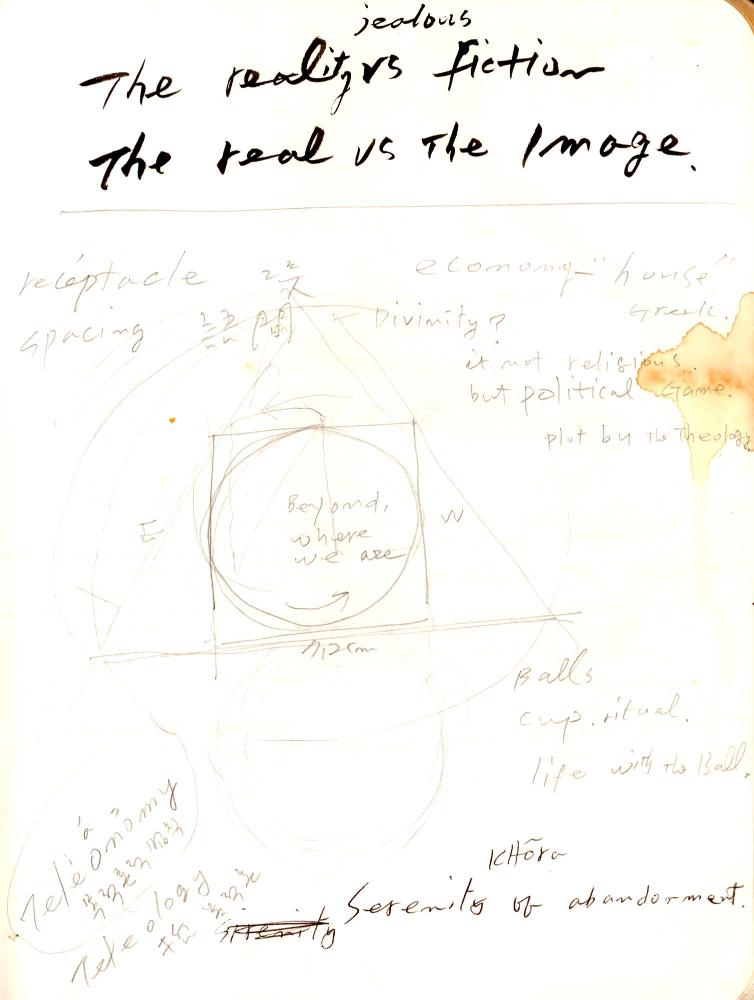 jealous
The reality vs fiction
The real vs The Image.
receptacle
economy "house"
Greek.
spacing
Divinity?
it not religious.
but political Game.
plot by The Theology
E
Beyond,
where
we are
W
Balls
cup. ritual.
life with the Ball.
Teléonomy
Teleology
KHōra
Serenity
Serenity of abandonment.